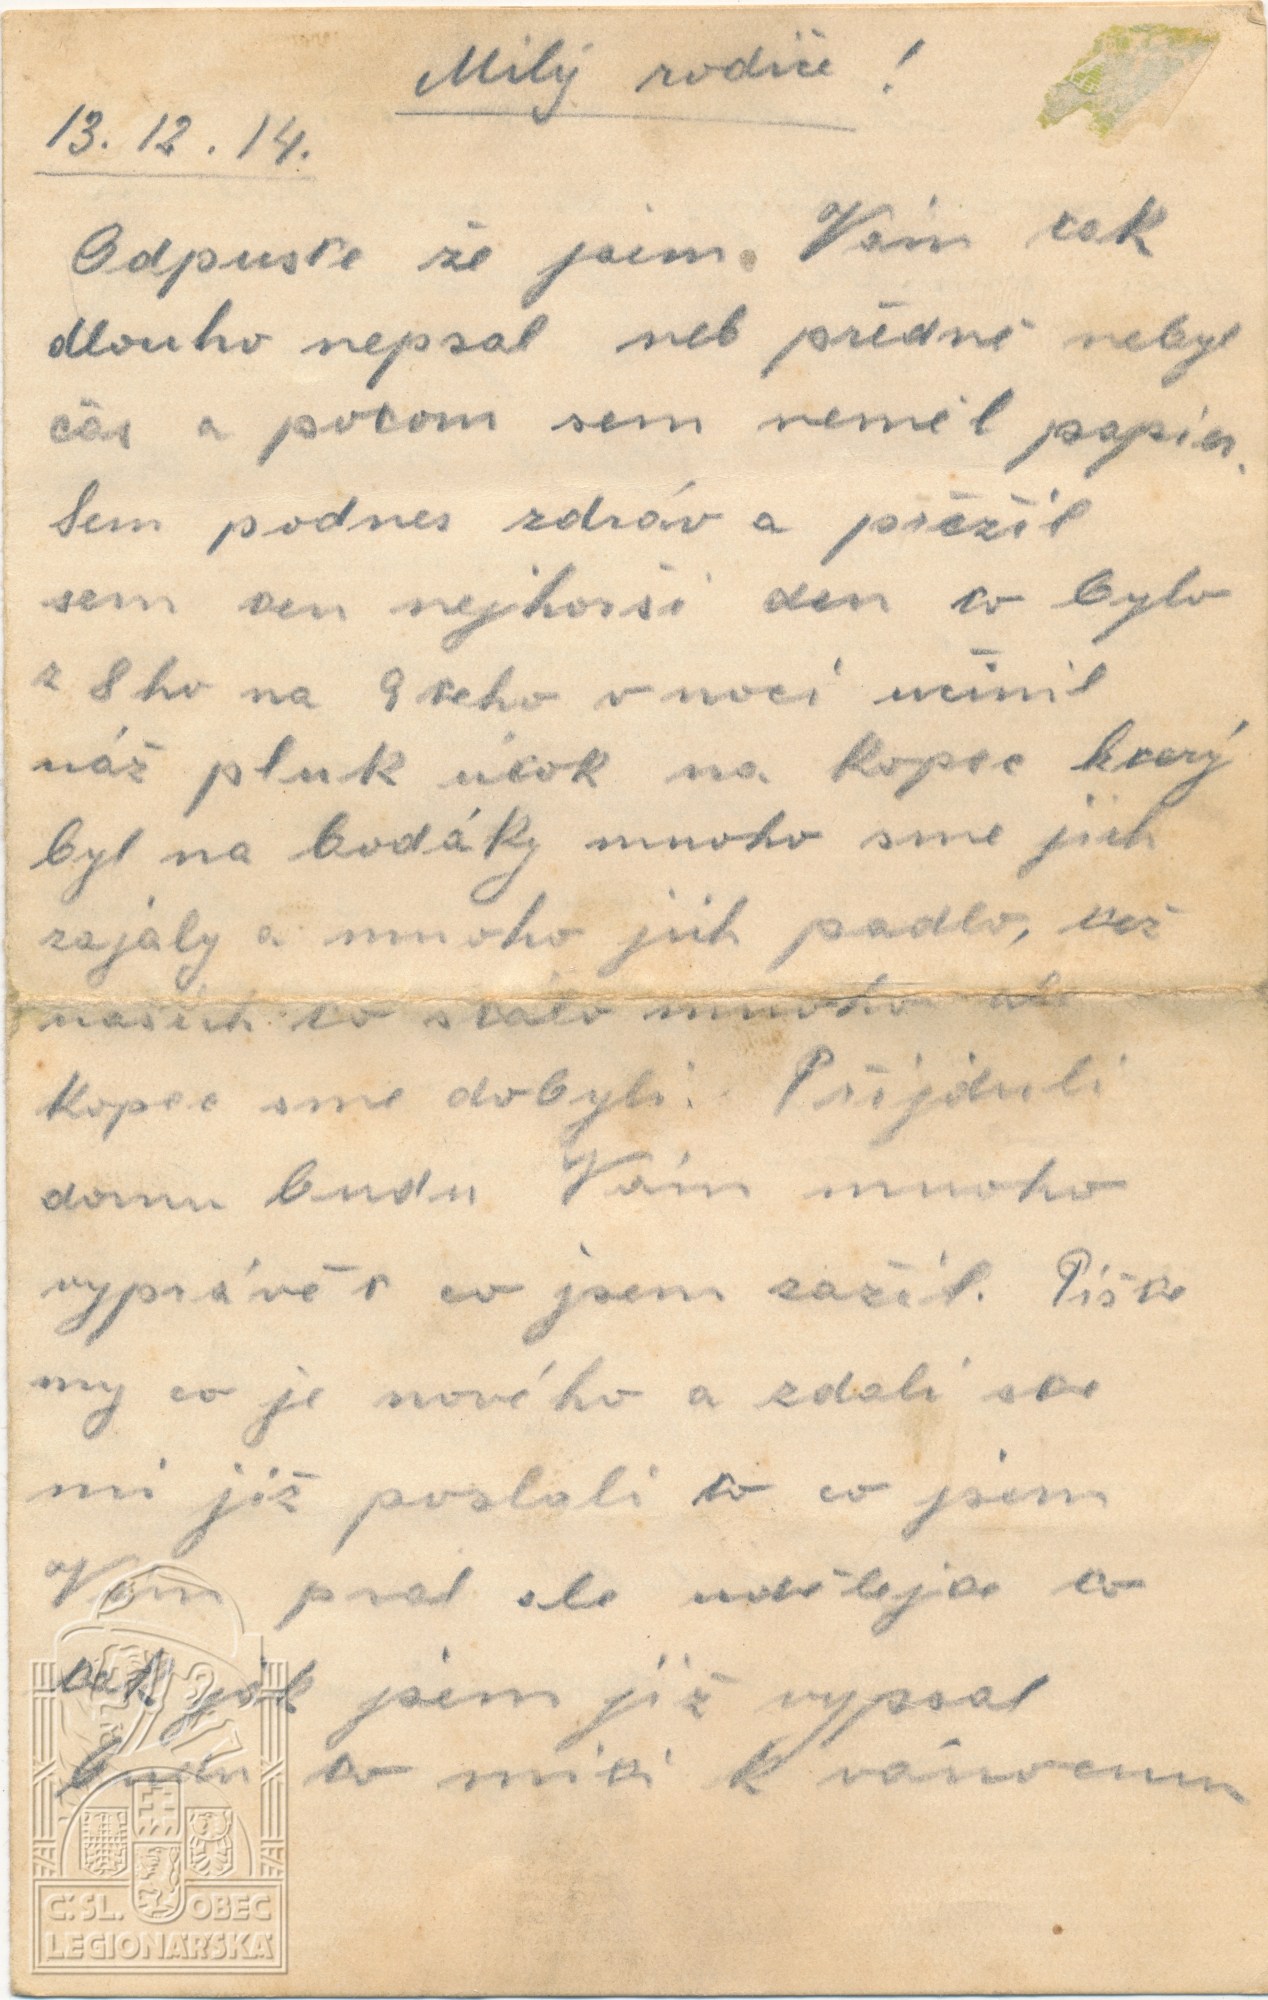 Milý rodiče!
13. 12. 14.
Odpuste že jsem Vám tak
dlouho nepsal neb předně nebyl
čas a potom sem neměl papír.
Sem podnes zdráv a přežil
sem ten nejhorší den to bylo
z 8ho na 9teho v noci učinil
náž pluk útok na kopec který
byl na bodáky mnoho sme jich
zajály a mnoho jich padlo, též
našich to stálo mnoho ale
kopec sme dobyli. Přijduli
domu budu Vám mnoho
vyprávět co jsem zažil. Pište
my co je nového a zdali ste
mi již poslali to co jsem
Vám psal ale udělejte to
tak jak jsem již vypsal
budu to míti k vánocum
Č:SL. OBEC
LEGIONÁŘSKÁ